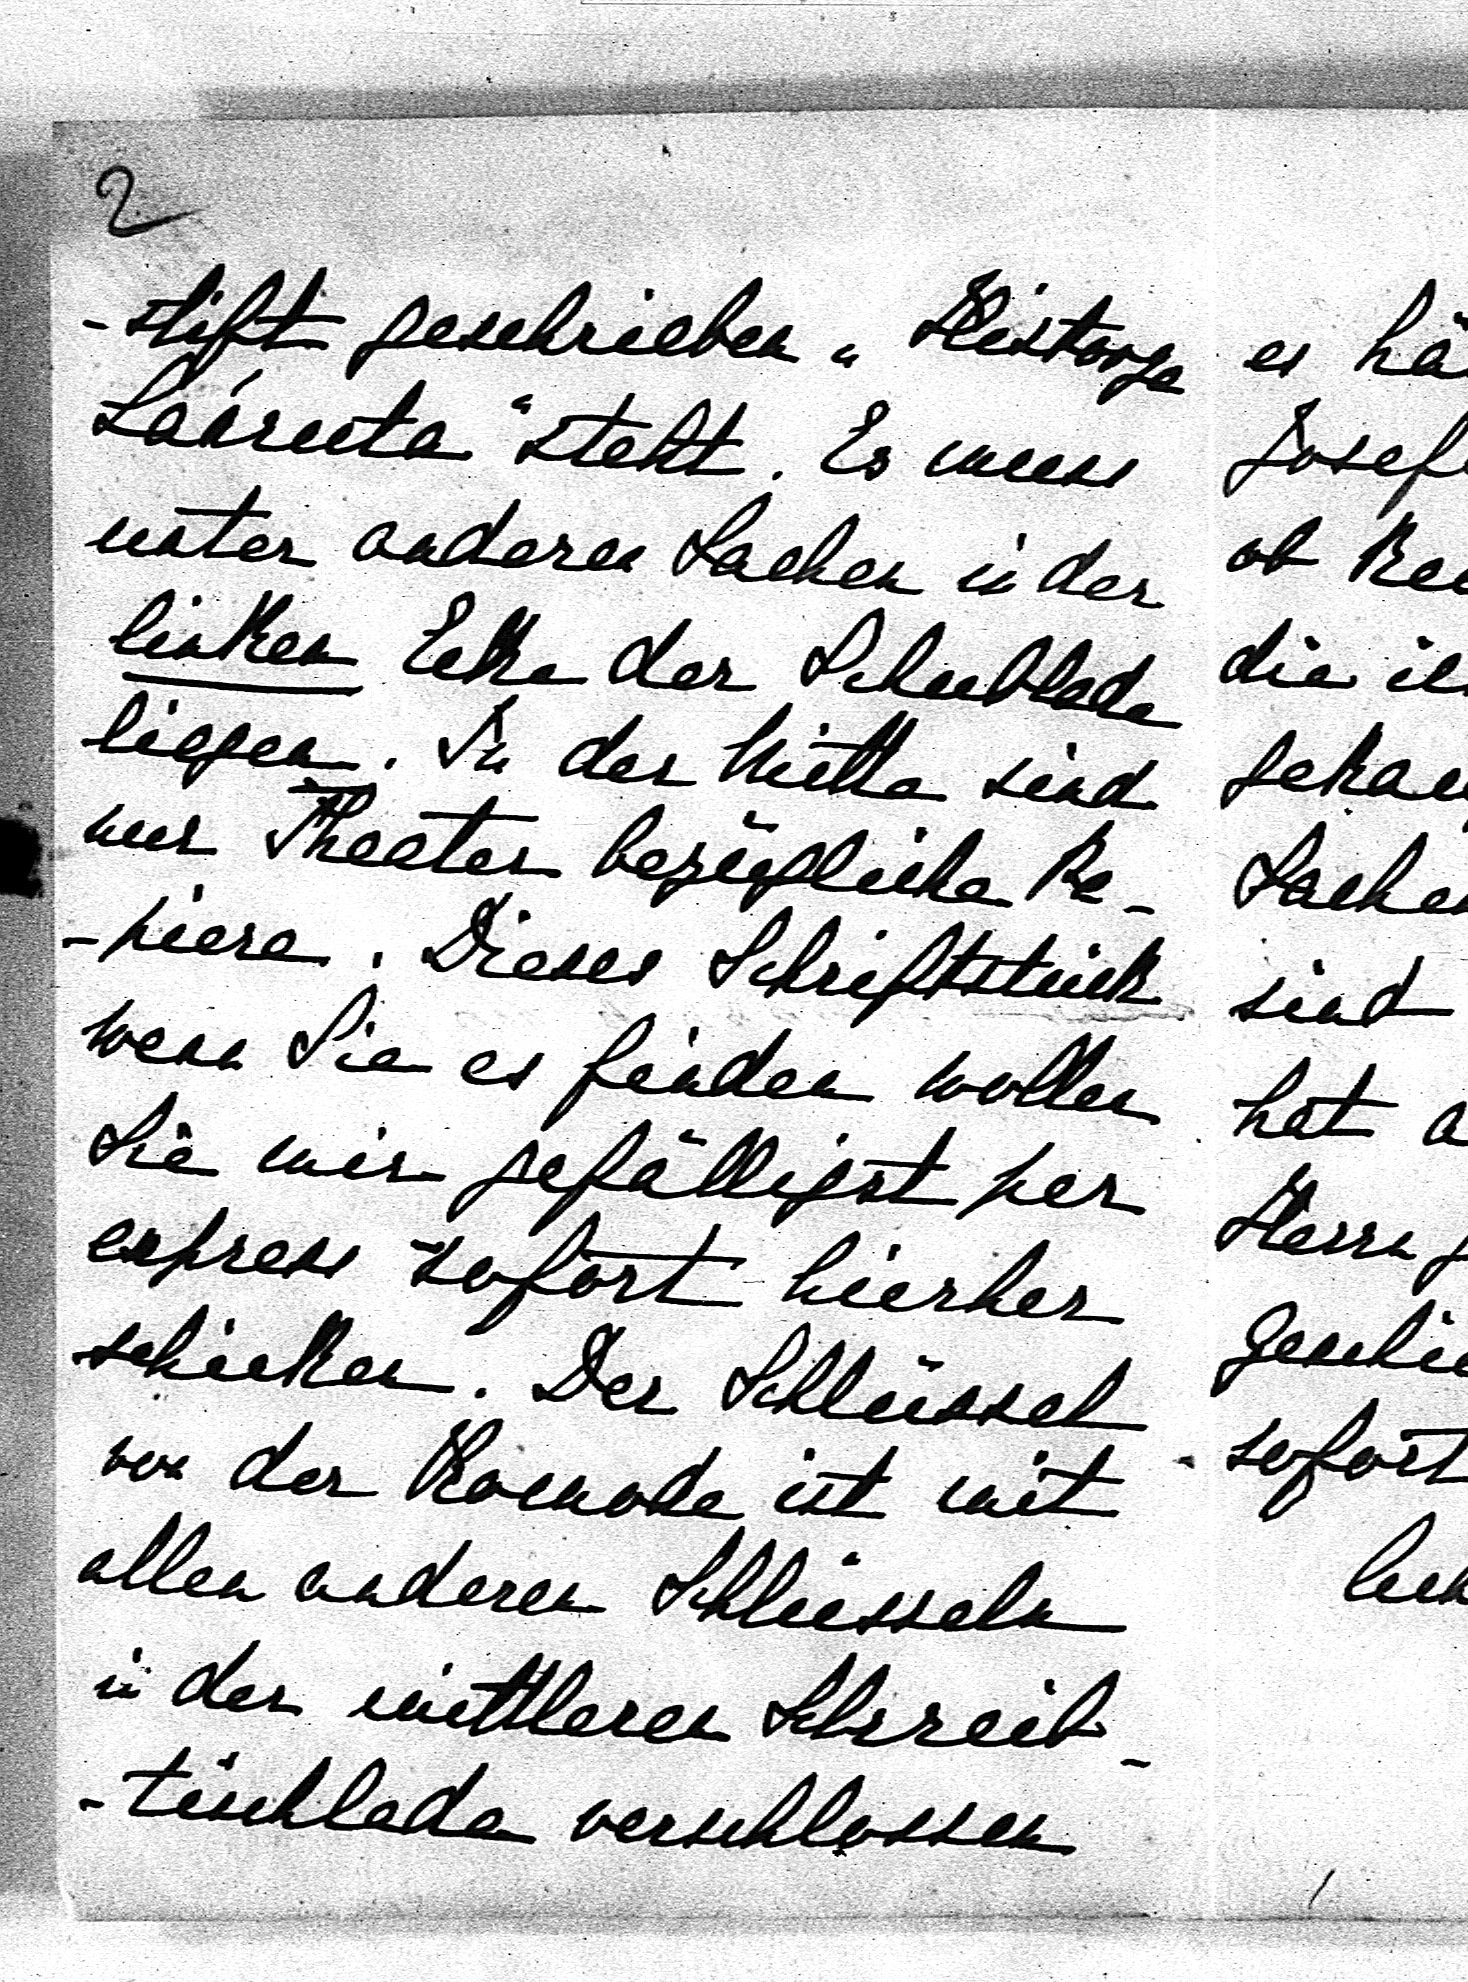 2
-stift geschrieben „Historya
Laörenta“ steht. Es muss
unter anderen Sachen in der
linken Ecke der Schublade
liegen. In der Mitte sind
nur Theater bezügliche Pa-
-piere. Dieses Schriftstück
wenn Sie es finden wollen
Sie mir gefälligst per
express sofort hierher
schicken. Der Schlüssel
von der Komode ist mit
allen anderen Schlüsseln
in der mittleren Schreib-
-tischlade verschlossen
es hä
Josef
ob
die
Sachen
sind
hat a
Herrn
sofort